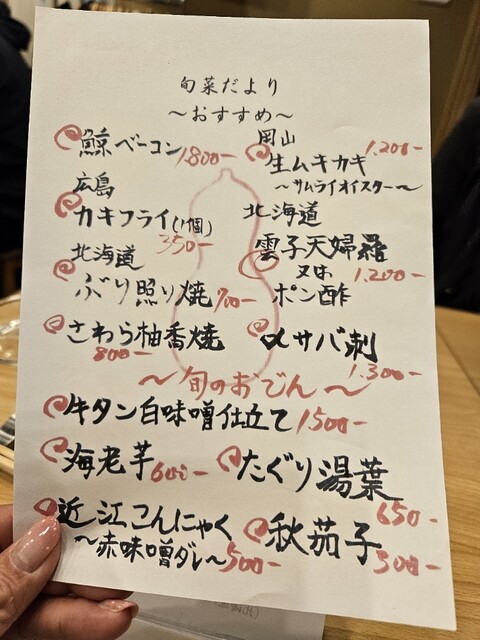 旬菜だより
～おすすめ～
鯨ベーコン 1.800-
広島
カキフライ(1個) 350-
北海道
ぶり照り焼 700-
さわら柚香焼
800-
岡山
生ムキカキ 1.200-
～サムライオイスター～
北海道
雲子天婦羅
又は 1.200-
ポン酢
〆サバ刺
1.300-
～旬のおでん～
牛タン白味噌仕立て 1500-
海老芋 600-
たぐり湯葉
650-
近江こんにゃく
～赤味噌ダレ～ 500-
秋茄子
500-